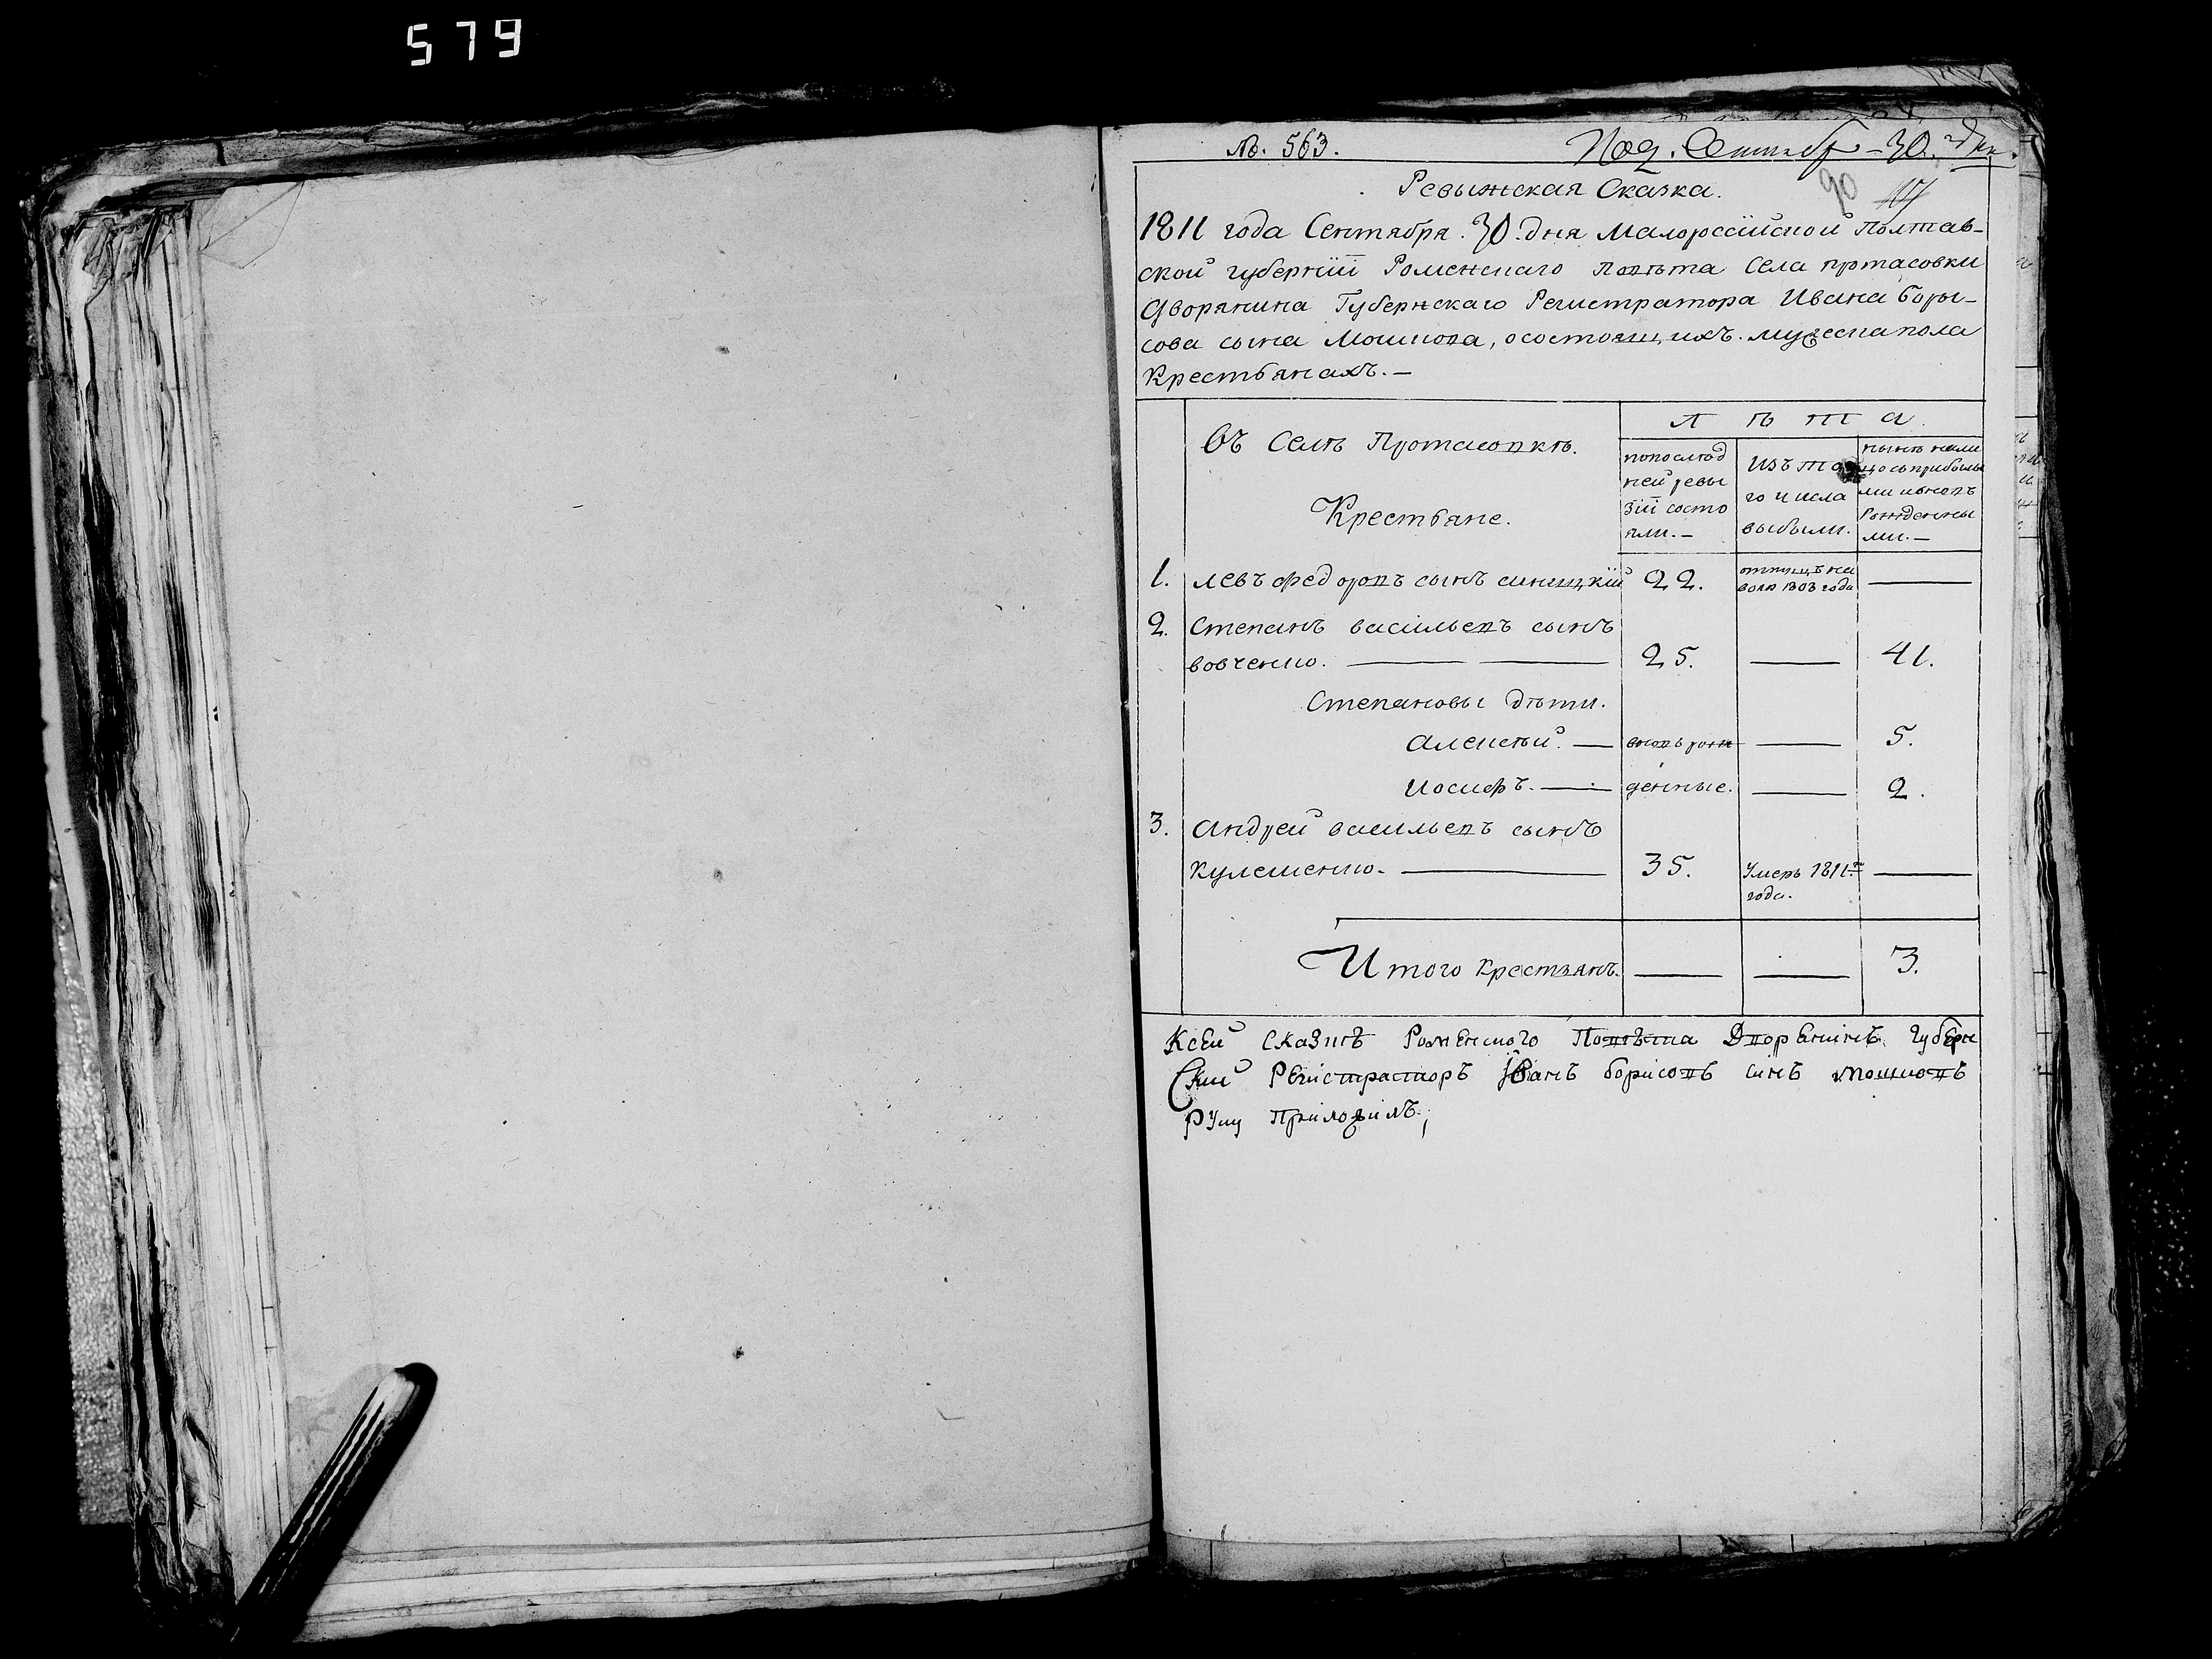 579
№. 563.
Под. Сентяб - 30. дня.
90 117
Ревыжская Сказка.
1811 года Сентября. 30. дня Малороссійской Полтав-
ской губерніи Роменскаго Повѣта Села пртасовки
Дворянина Губернскаго Регистратора Ивана Боры-
сова сына Мошкова, о состоящихъ. мужеска пола
Крестьянахъ.-
Въ Селѣ Протасовкѣ.
Крестьяне.
Л ѣ т а.
по послѣд
ней ревы
зіи состо
яли.-
Изъ то
го числа
выбыли.
нынѣ нали
цо съ прибылы
ми и вновь
Рожденны
ми.-
1. левъ федоровъ сынъ синицкій 22. отпущ ъ на —
волю 1803 года
2. Степанъ васильевъ сынъ
вовченко. — — 25. — 41.
Степановы дѣти.
Алексѣй. — вновь рож — 5.
Иосифъ. — денные. — 2.
3. Андрей васильевъ сынъ
Кулешенко. — 35. Умеръ 1811го —
года.
Итого Крестьянъ. — — 3.
Ксей Сказкѣ Роменского Повѣта Дворенинъ Губерн
Ский Регистраторъ Иванъ борисовъ синъ мошковъ
Руку Приложилъ;